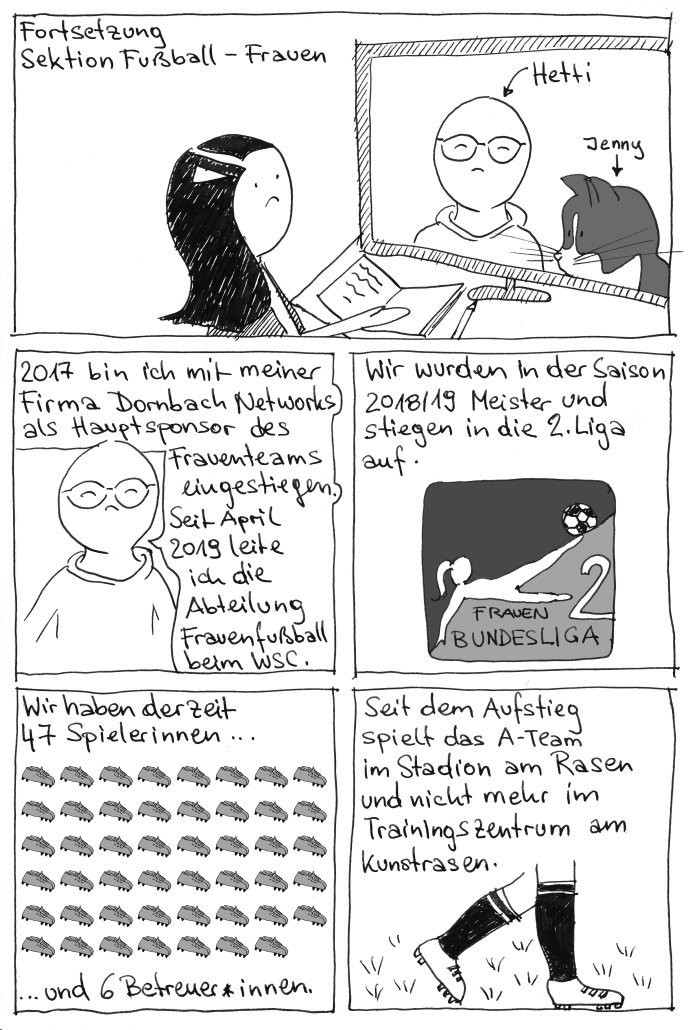 Fortsetzung
Sektion Fußball – Frauen
Hetti
Jenny
2017 bin ich mit meiner
Firma Dornbach Networks
als Hauptsponsor des
Frauenteams
eingestiegen.
Seit April
2019 leite
ich die
Abteilung
Frauenfußball
beim WSC.
Wir wurden in der Saison
2018/19 Meister und
stiegen in die 2. Liga
auf.
2
FRAUEN
BUNDESLIGA
Wir haben derzeit
47 Spielerinnen ...
... und 6 Betreuer*innen.
Seit dem Aufstieg
spielt das A-Team
im Stadion am Rasen
und nicht mehr im
Trainingszentrum am
Kunstrasen.